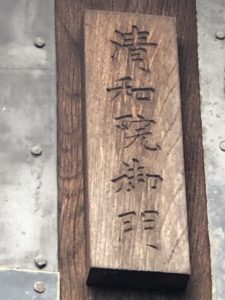 清和院御門